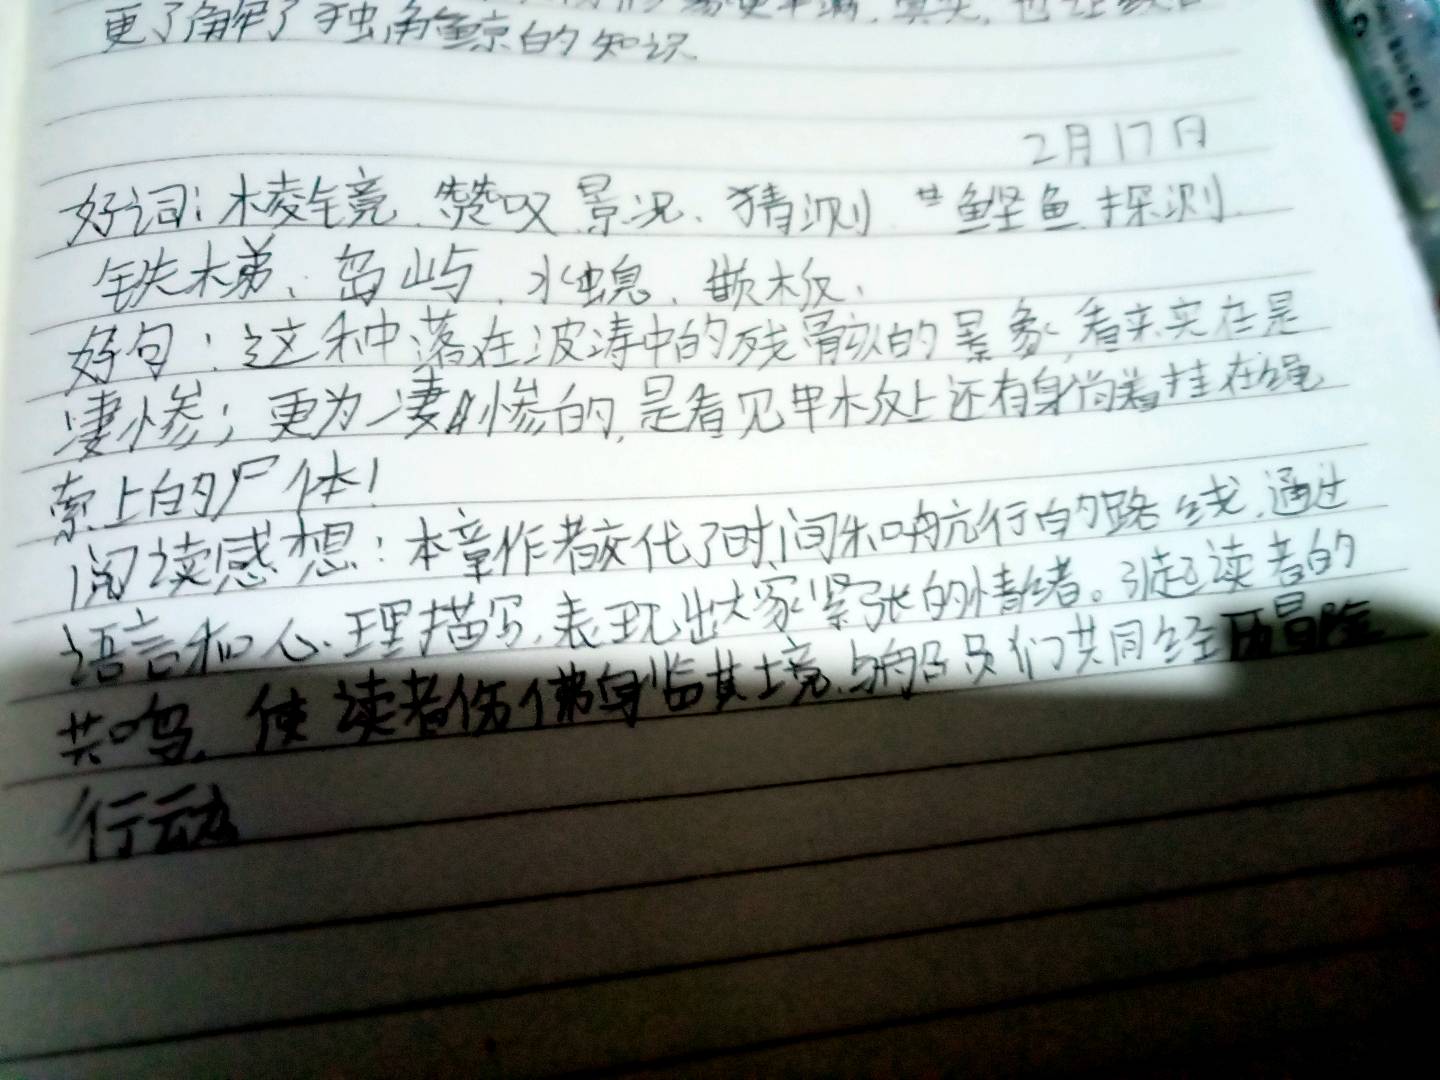 更了解了独角鲸的知识
2月17日
好词：棱镜、赞叹、景况、猜测、鲣鱼、探测
铁梯、岛屿、水螅、嵌板、
好句：这种落在波涛中的残骸的景象，看来实在是
凄惨；更为凄惨的，是看见甲板上还有身尚着挂在绳
索上的尸体！
阅读感想：本章作者交代了时间和呐航行的路线，通过
语言和心理描写，表现出大家紧张的情绪。引起读者的
共鸣，使读者仿佛身临其境，与船员们共同经历冒险
行动